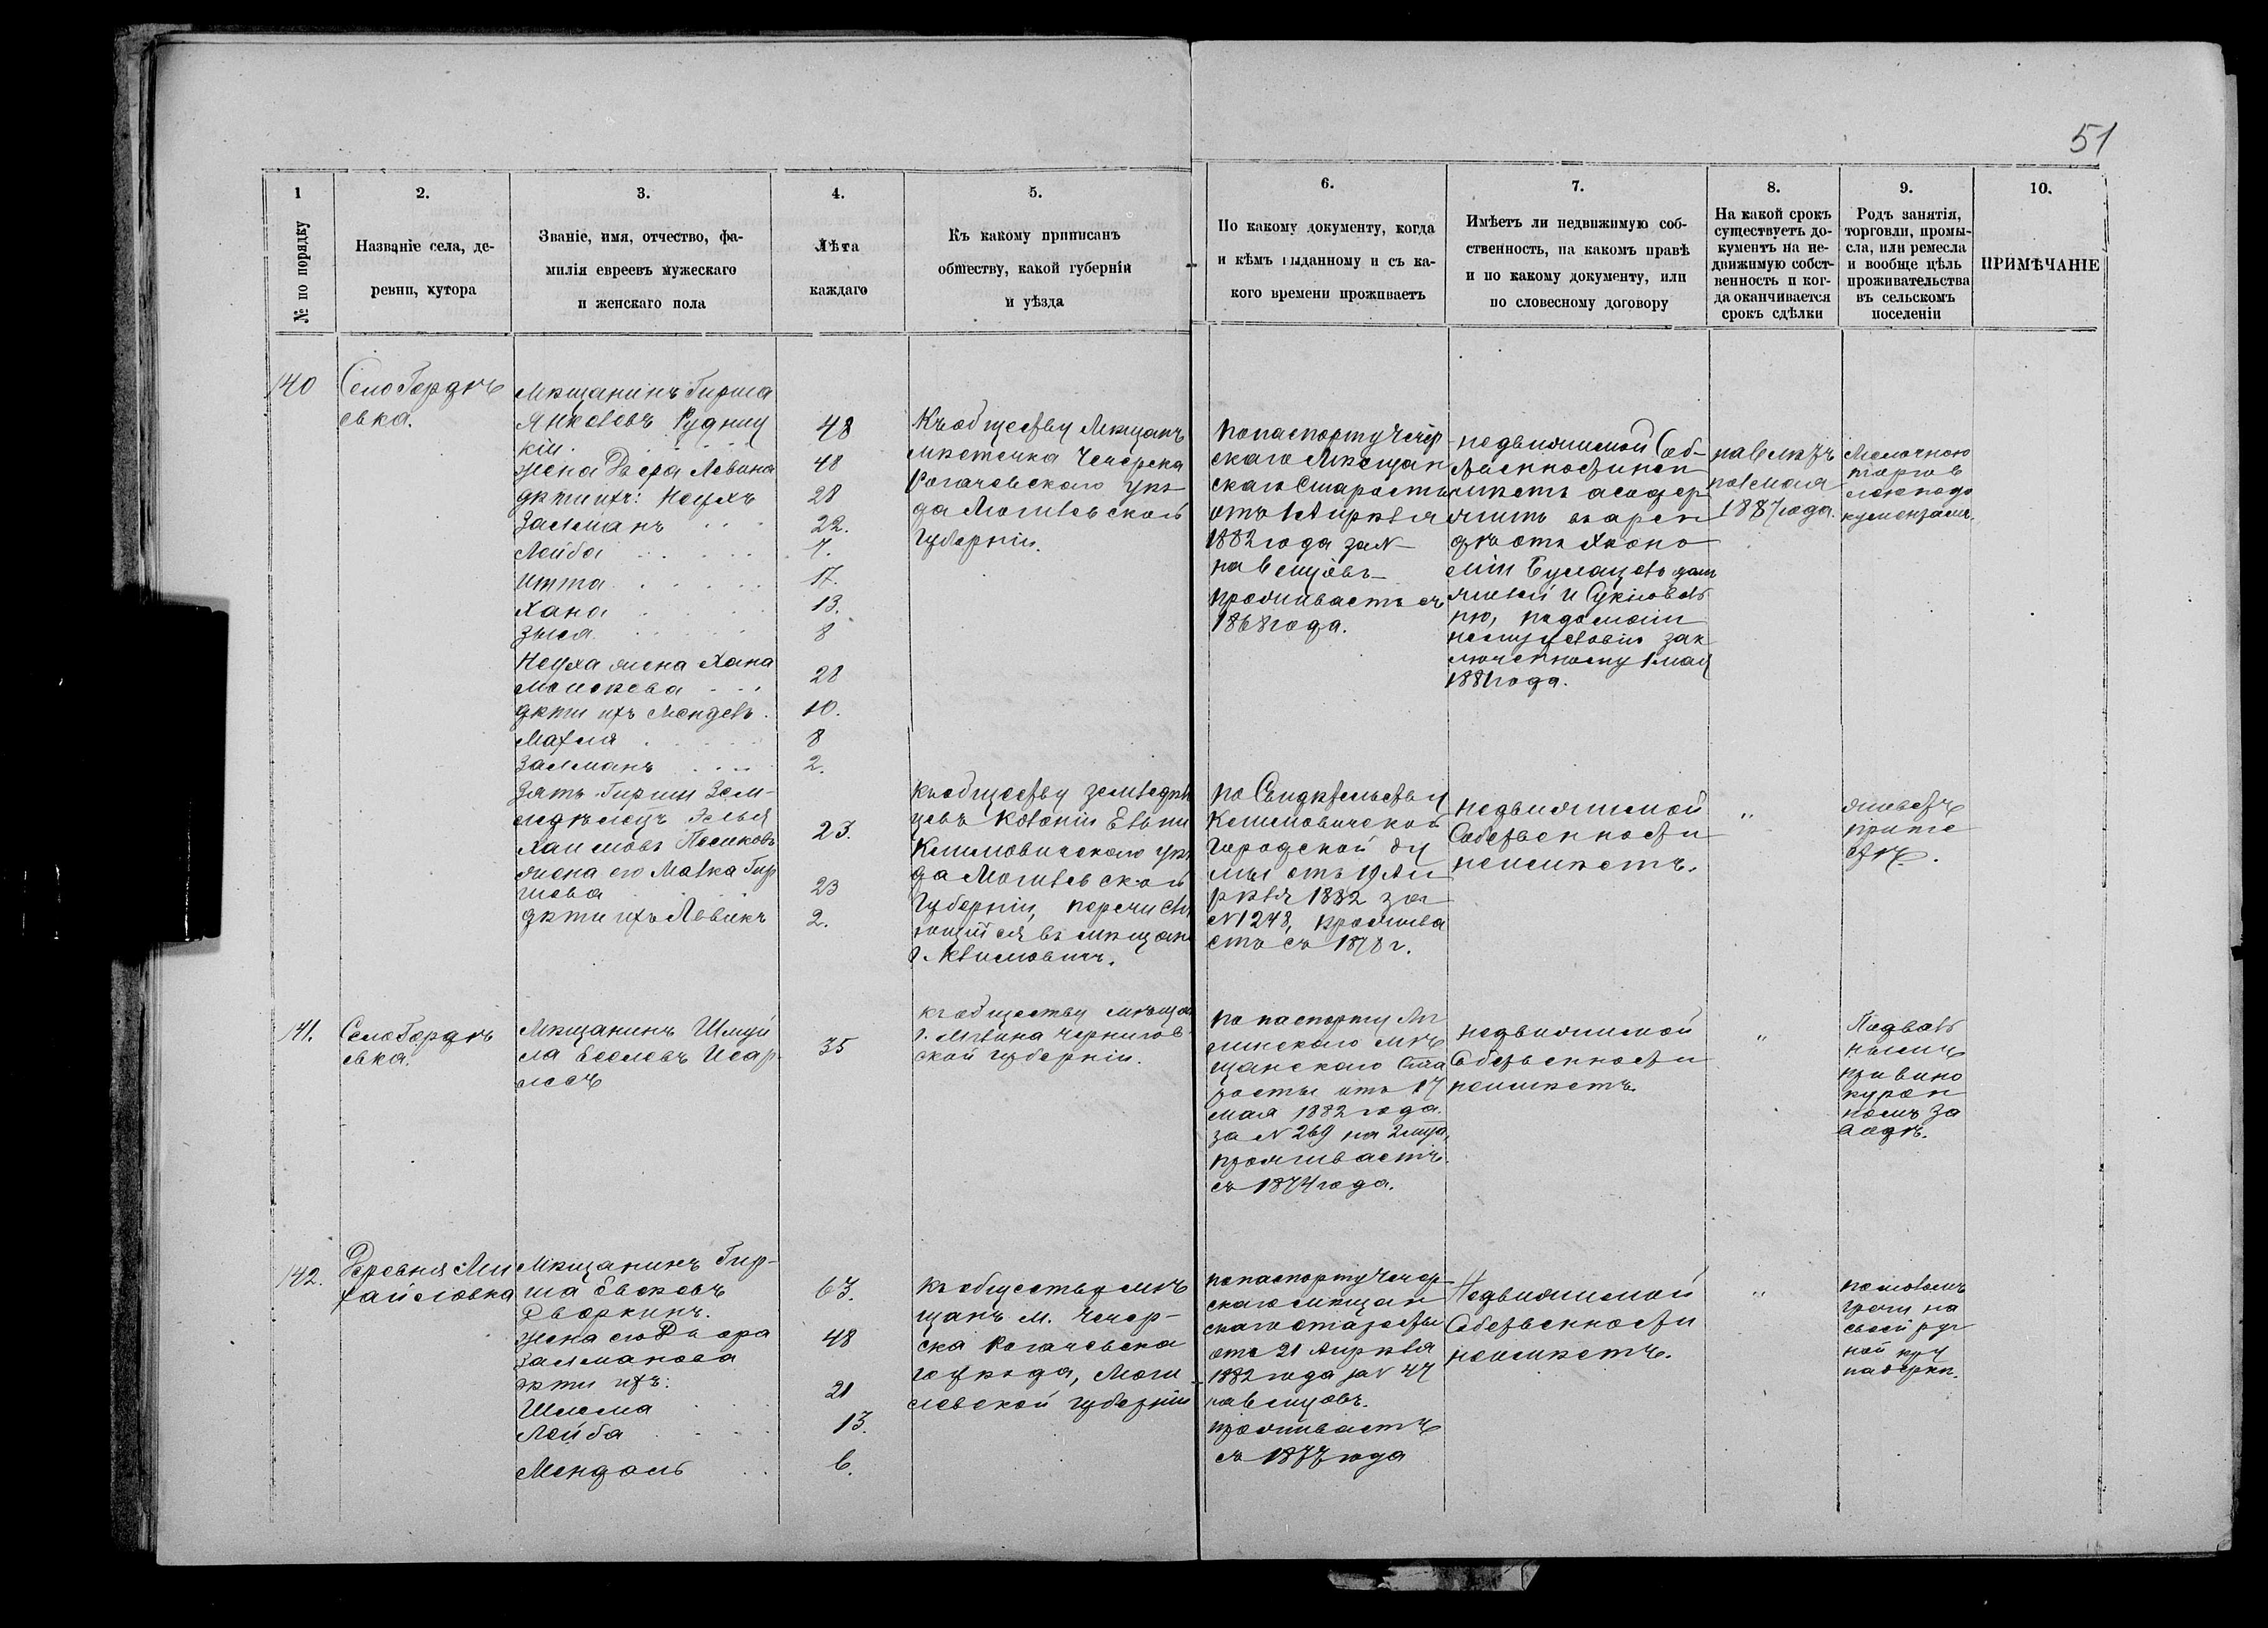 51
1
№ по порядку
2.
Названіе села, де-
ревни, хутора
3.
Званіе, имя, отчество, фа-
милія евреевъ мужескаго
и женскаго пола
4.
Лѣта
каждаго
5.
Къ какому приписанъ
обществу, какой губерніи
и уѣзда
6.
По какому документу, когда
и кѣмъ выданному и съ ка-
кого времени проживаетъ
7.
Имѣетъ ли недвижимую соб-
ственность, на какомъ правѣ
и по какому документу, или
по словесному договору
8.
На какой срокъ
существуетъ до-
кументъ на не-
движимую собст-
венность и ког-
да оканчивается
срокъ сдѣлки
9.
Родъ занятія,
торговли, промы-
сла, или ремесла
и вообще цѣль
проживательства
въ сельскомъ
поселеніи
10.
ПРИМѢЧАНІЕ
140
Село Гордѣ
евка.
Мѣщанинъ Гирша
Янкелевъ Рудниц
кій
жена Двера Левина
дѣти ихъ: Неухъ
Залманъ
Лейба
Итта
Хана
Зыся
Неуха жена Хана
Моисеева
дѣти ихъ Мендель
Махля
Залманъ
Зять Гирши Зем-
ледѣлецъ Элья
Хаимовъ Песиковъ
жена его Малка Гир
шова
дѣти ихъ Левикъ
48
48
28
22.
7.
17.
13.
8
28
10.
8
2.
23.
23
2.
Къ обществу Мѣщанъ
мѣстечка Чечерска
Рогачевскаго уѣз
да Могилевской
Губерніи.
къ обществу земледѣль
цевъ Колоніи
Климовичскаго уѣз
да Могилевской
Губерніи, перечисля
ющійся въ мѣщане
г. Климовичъ.
по паспорту Чечер
скаго Мѣщан
скаго Старосты
отъ 1 Апрѣля
1882 года за №
на 6 мѣцовъ
проживаетъ съ
1868 года.
по Свидѣтельству
Климовичской
Городской Ду
мы отъ 19 Ап
рѣля 1882 за
№ 1248, прожива
етъ съ 1878 г.
недвижимой Соб-
ственности не
имѣетъ а содер
житъ въ арен
дѣ отъ эконо
міи
заключенному 1 мая
1881 года.
недвижимой
Собственности
неимѣетъ.
на 6 лѣтъ
по 1 мая
1887 года.
"
Мелочною
торгов
лею по до
кументамъ.
живетъ
при те
стѣ.
141.
Село Гордѣ
евка.
Мѣщанинъ Шмуй
ла Еселевъ Исар
левъ
35
къ обществу мѣщанъ
г. Мглина Чернигов
ской Губерніи.
по паспорту Мг
линскаго мѣ
щанскаго Ста
росты отъ 17
мая 1882 года
за № 269 на 2 мѣца,
проживаетъ
съ 1874 года.
недвижимой
Собственности
неимѣетъ.
"
Подваль
нымъ
при вино
курен
номъ за
водѣ.
142.
Деревня Ми
хайловка
Мѣщанинъ Гир-
ша Евсеевъ
Дворкинъ.
жена его Двора
Залманова
дѣти ихъ:
Шлема
Лейба
Мендаль
63.
48
21
13.
6.
къ обществу мѣ
щанъ м. Чечер-
ска Рогачевска
го уѣзда, Моги
левской губерніи
по паспорту Чечер
скаго мѣщан
скаго старосты
отъ 21 Апрѣля
1882 года за № 47
на 6 мѣцовъ.
проживаетъ
съ 1877 года
Недвижимой
Собственности
неимѣетъ.
"
на
своей руч
ной кру
подеркѣ.